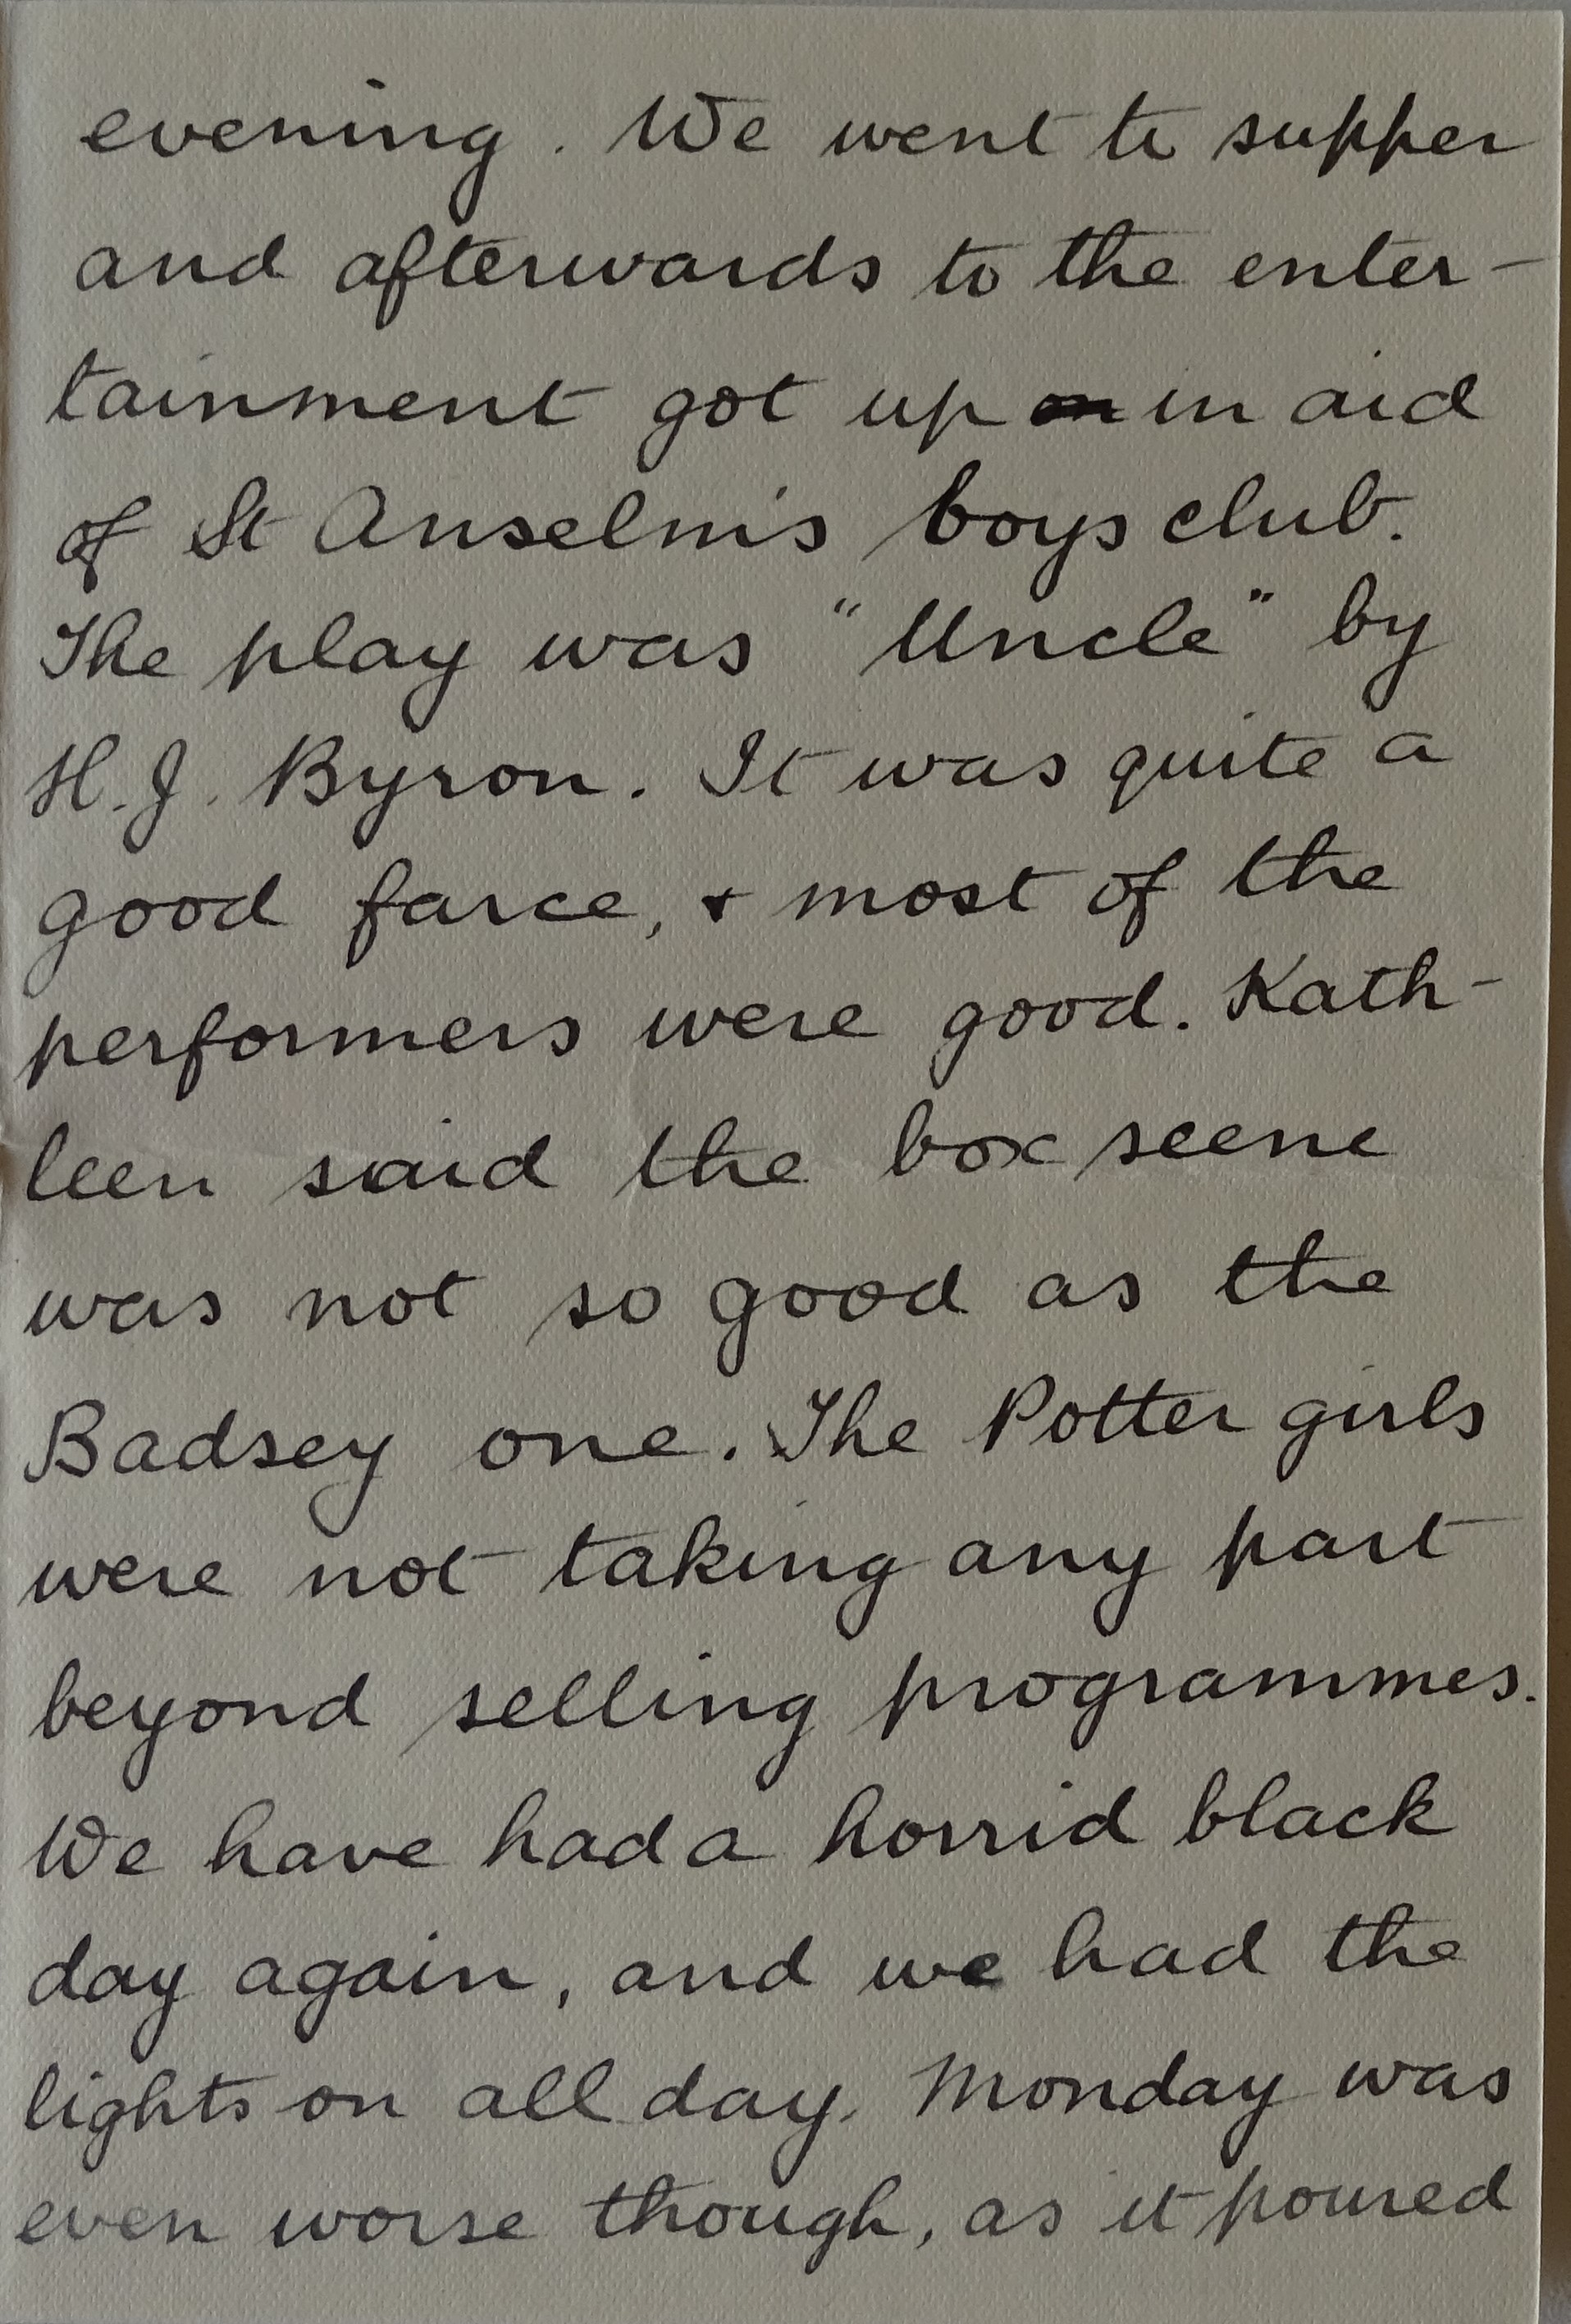 evening. We went to supper
and afterwards to the enter-
tainment got up in aid
of St Anselm's boys club.
The play was "Uncle" by
H. J. Byron. It was quite a
good farce, & most of the
performers were good. Kath-
leen said the box scene
was not so good as the
Badsey one. The Potter girls
were not taking any part
beyond selling programmes.
We have had a horrid black
day again, and we had the
lights on all day. Monday was
even worse though, as it poured